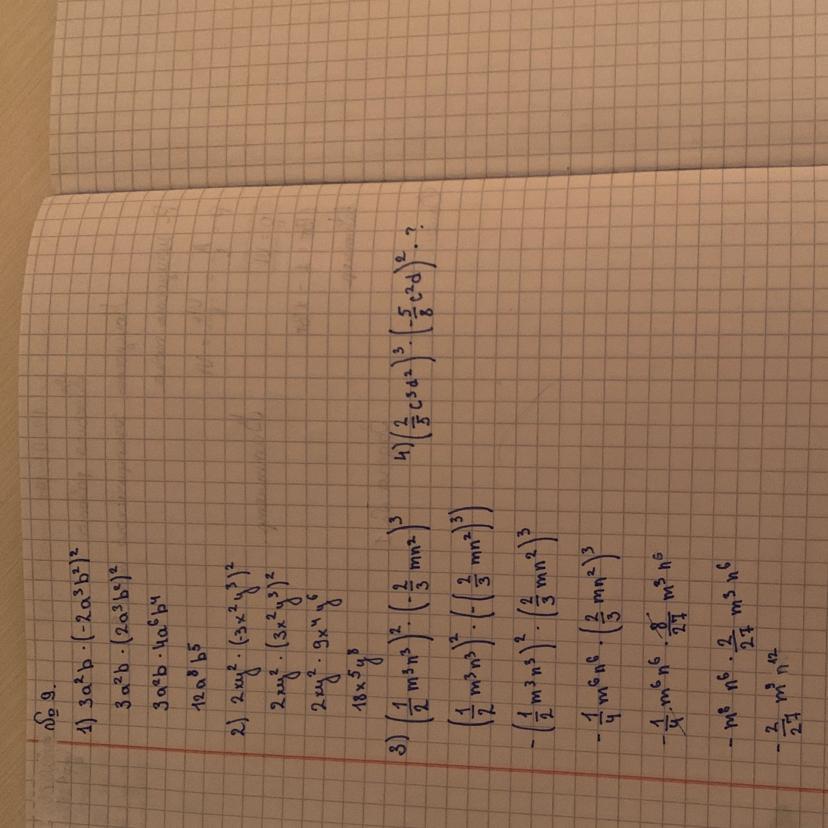 № 9.
1) 3a²b · (-2a³b²)²
3a²b · (2a³b²)²
3a²b · 4a⁶b⁴
12a⁸b⁵
2) 2xy² · (-3x²y³)²
2xy² · (3x²y³)²
2xy² · 9x⁴y⁶
18x⁵y⁸
3) (1/2 m³n³)² · (-2/3 mn²)³
(1/2 m³n³)² · (-(2/3 mn²)³)
-(1/2 m³n³)² · (2/3 mn²)³
-1/4 m⁶n⁶ · (2/3 mn²)³
-1/4 m⁶n⁶ · 8/27 m³n⁶
-m⁶n⁶ · 2/27 m³n⁶
-2/27 m⁹n¹²
4) (2/5 c³d²)³ · (-5/8 c²d)² · ?